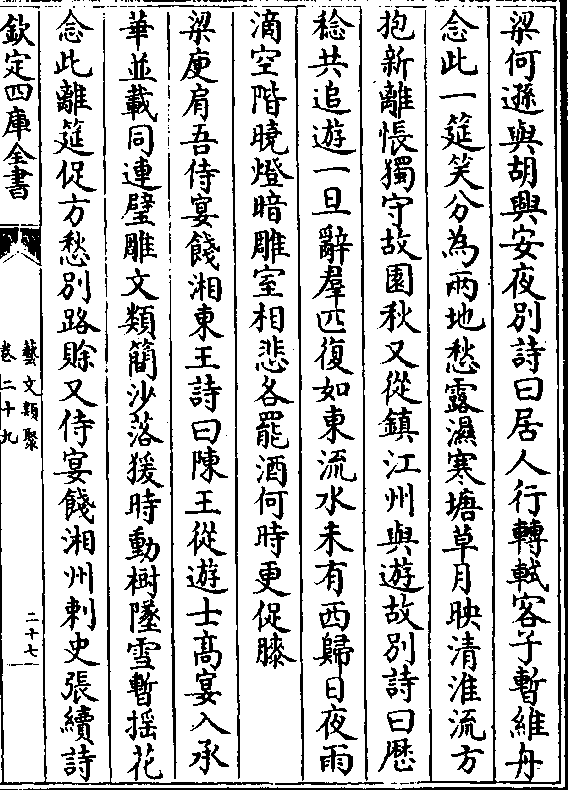 梁何遜與胡興安夜別詩曰居人行轉軾客子暫維舟
念此一筵笑分為兩地愁露濕寒塘草月映清淮流方
抱新離悵獨守故園秋又從鎮江州與遊故別詩曰歴
稔共追遊一旦辭羣匹復如東流水未有西歸日夜雨
滴空階曉燈暗雕室相悲各罷酒何時更促膝
梁庾肩吾侍宴餞湘東王詩曰陳王從遊士髙宴入承
華並載同連璧雕文類簡沙落猨時動樹墜雪暫揺花
念此離筵促方愁別路賖又侍宴餞湘州刺史張續詩
欽定四庫全書
藝文類聚
卷二十九
二十七